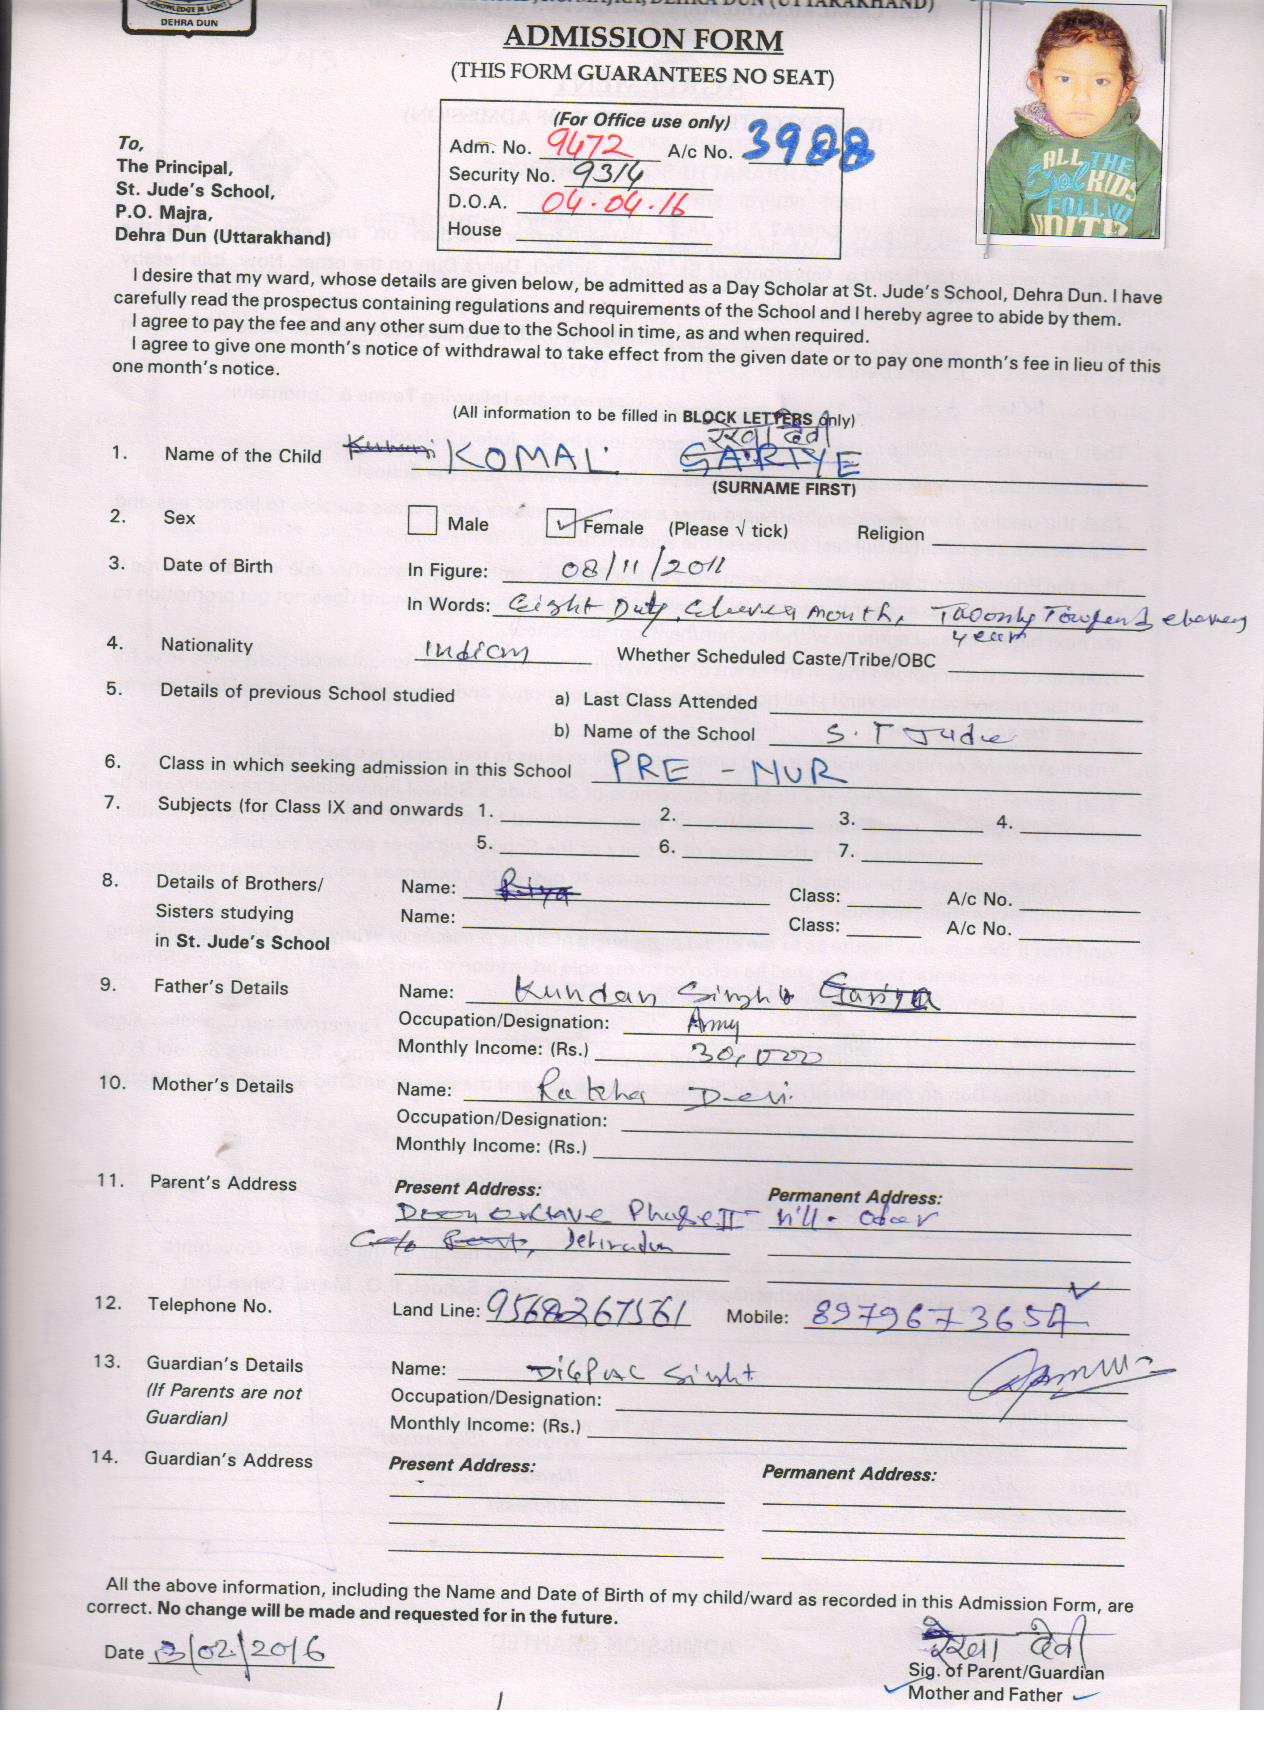 KNOWLEDGE IS LIGHT
DEHRA DUN
MAJRA, DEHRA DUN (UTTARAKHAND)
ADMISSION FORM
(THIS FORM GUARANTEES NO SEAT)
(For Office use only)
Adm. No. 9472 A/c No. 3988
Security No. 9314
D.O.A. 04.04.16
House
ALL THE
Cool KIDS
FOLLOW
To,
The Principal,
St. Jude's School,
P.O. Majra,
Dehra Dun (Uttarakhand)
I desire that my ward, whose details are given below, be admitted as a Day Scholar at St. Jude's School, Dehra Dun. I have
carefully read the prospectus containing regulations and requirements of the School and I hereby agree to abide by them.
I agree to pay the fee and any other sum due to the School in time, as and when required.
I agree to give one month's notice of withdrawal to take effect from the given date or to pay one month's fee in lieu of this
one month's notice.
(All information to be filled in BLOCK LETTERS only)
रेखा देवी
1. Name of the Child Kumari KOMAL GARIYE
(SURNAME FIRST)
2. Sex Male Female (Please √ tick) Religion
3. Date of Birth In Figure: 08/11/2011
In Words: Eight month,
year
4. Nationality Indian Whether Scheduled Caste/Tribe/OBC
5. Details of previous School studied a) Last Class Attended
b) Name of the School S.T Jude
6. Class in which seeking admission in this School PRE - NUR
7. Subjects (for Class IX and onwards 1. 2. 3. 4.
5. 6. 7.
8. Details of Brothers/ Name: Riya Class: A/c No.
Sisters studying Name: Class: A/c No.
in St. Jude's School
9. Father's Details Name: Kundan Singh Gariya
Occupation/Designation: Army
Monthly Income: (Rs.) 30,000
10. Mother's Details Name: Rakha Devi
Occupation/Designation:
Monthly Income: (Rs.)
11. Parent's Address Present Address: Permanent Address:
Doon enclave Phase II
Dehradun
12. Telephone No. Land Line: 9568267561 Mobile: 8979673654
13. Guardian's Details Name: DIGPAL Singh
(If Parents are not Occupation/Designation:
Guardian) Monthly Income: (Rs.)
14. Guardian's Address Present Address: Permanent Address:
All the above information, including the Name and Date of Birth of my child/ward as recorded in this Admission Form, are
correct. No change will be made and requested for in the future.
Date 3/02/2016 रेखा देवी
Sig. of Parent/Guardian
Mother and Father